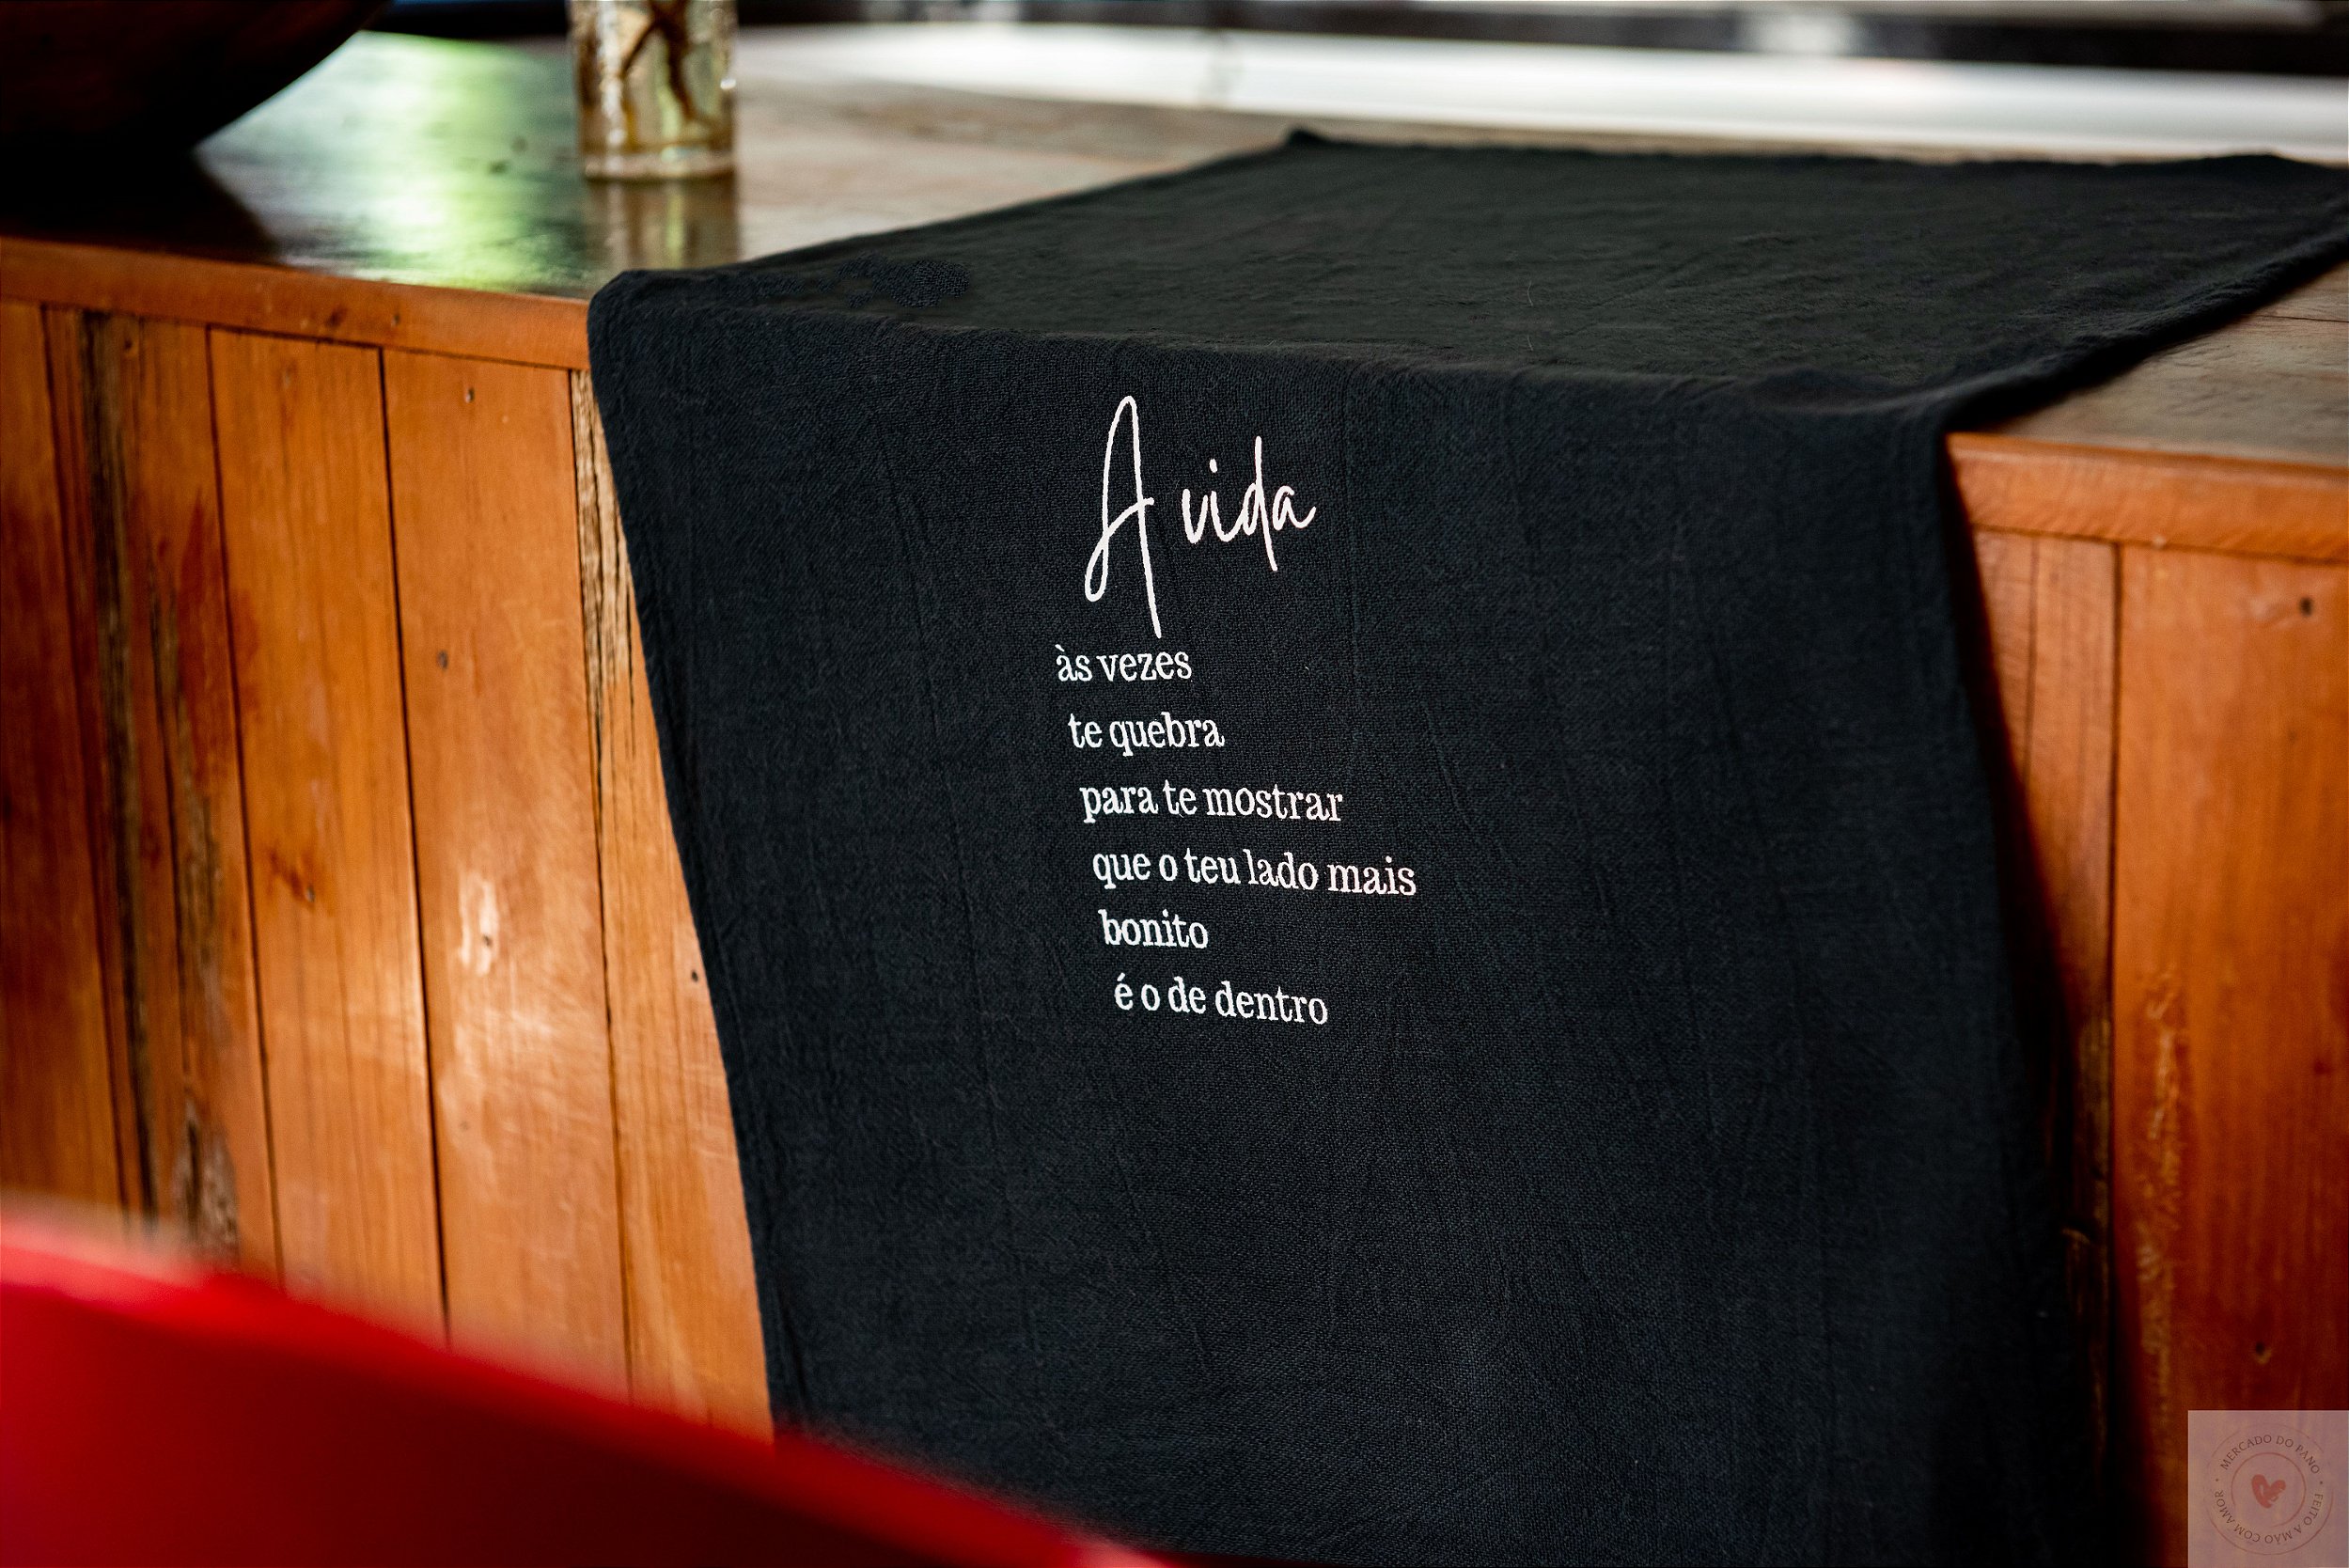 A vida
às vezes
te quebra
para te mostrar
que o teu lado mais
bonito
é o de dentro
MERCADO DO PANO
FEITO A MÃO COM AMOR